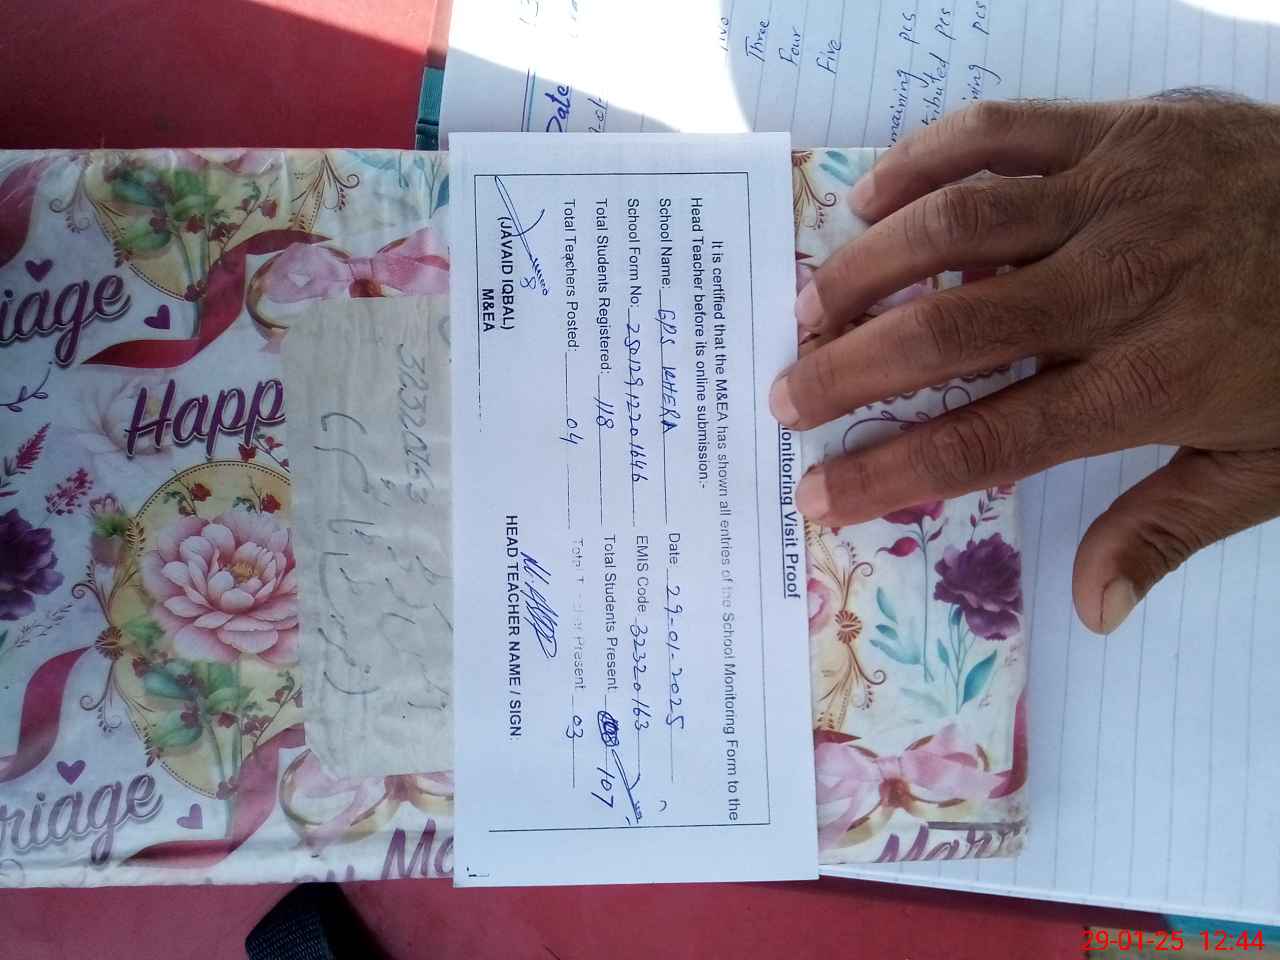 Monitoring Visit Proof
It is certified that the M&EA has shown all entries of the School Monitoring Form to the
Head Teacher before its online submission:-
School Name: GPS KHERA Date 29-01-2025
School Form No: 25012912201646 EMIS Code 32320163
Total Students Registered: 118 Total Students Present 107
Total Teachers Posted: 04 Total Teacher Present 03
(JAVAID IQBAL)
M&EA
HEAD TEACHER NAME / SIGN:
32320163
Happ
riage
rriage
Ma
Marr
Date
Three
Four
Five
maining pcs
tributed pcs
ining pcs
29-01-25 12:44